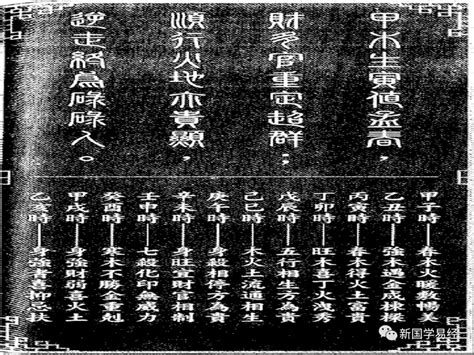 甲木生寅值孟春，
財多官重定超群；
順行火地亦貴顯，
逆走終為碌碌人。
甲子時——春木火暖敷暢美
乙丑時——強木遇金成棟樑
丙寅時——春木得火主富貴
丁卯時——旺木喜丁火洩秀
戊辰時——五行相生方為貴
己巳時——木火土流通相生
庚午時——身殺相停方為貴
辛未時——身旺宜財官相制
壬申時——七殺化印無威力
癸酉時——寒木不勝金重剋
甲戌時——身強財弱喜火土
乙亥時——身強者喜抑忌扶
新国学易经